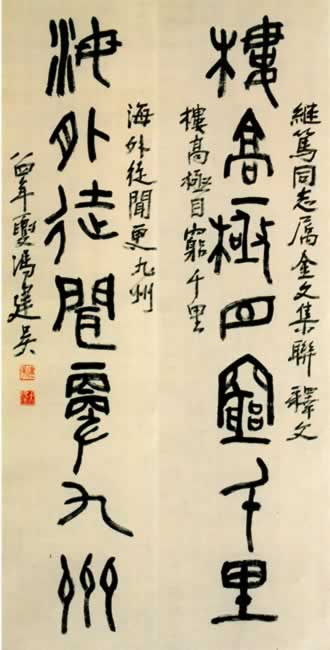 樓高極目窮千里
維篤同志属金文集聯 釋文
樓高極目窮千里
海外徒聞更九州
海外徒聞更九州
八四年夏馮建吳